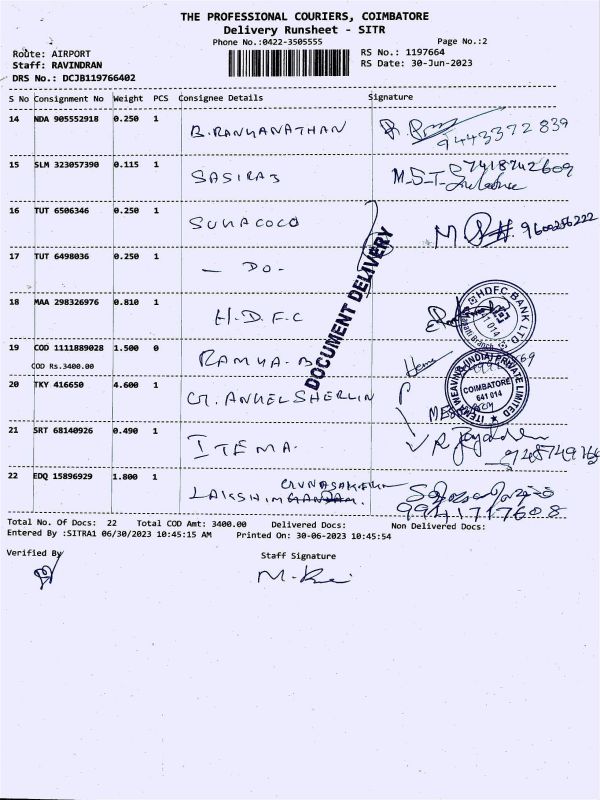 THE PROFESSIONAL COURIERS, COIMBATORE
Delivery Runsheet - SITR
Phone No.:0422-3505555 Page No.:2
Route: AIRPORT RS No.: 1197664
Staff: RAVINDRAN RS Date: 30-Jun-2023
DRS No.: DCJB119766402
S No Consignment No Weight PCS Consignee Details Signature
14 NDA 905552918 0.250 1 B.RANGANATHAN 9443372839
15 SLM 323057390 0.115 1 SASIRAJ M.S.T. 9741874 2609
16 TUT 6506346 0.250 1 SUNACOCO 9600286222
17 TUT 6498036 0.250 1 - DO -
DOCUMENT DELIVERY
18 MAA 298326976 0.810 1 H.D.F.C
HDFC BANK LTD
19 COD 1111889028 1.500 0 RAMYA.B Hema
COD Rs.3400.00
20 TKY 416650 4.600 1 G.ANGEL SHERLIN
ITEMA WEAVING (INDIA) PRIVATE LIMITED
COIMBATORE
641 014
21 SRT 68140926 0.490 1 ITEMA.
22 EDQ 15896929 1.800 1
Total No. Of Docs: 22 Total COD Amt: 3400.00 Delivered Docs: Non Delivered Docs:
Entered By :SITRA1 06/30/2023 10:45:15 AM Printed On: 30-06-2023 10:45:54
Verified By Staff Signature